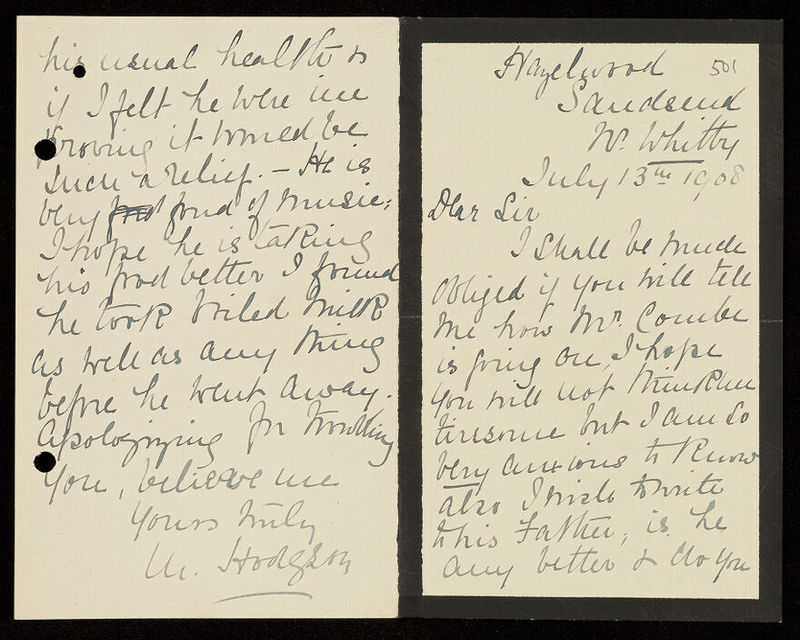 Hazelwood
501
Sandsend
Nr. Whitby
July 13th 1908
Dear Sir
I shall be much
obliged if you will tell
me how Mr. Combe
is going on, I hope
you will not think me
tiresome but I am so
very anxious to know
also I wish to write
to his Father, is he
any better & do you
his usual health &
if I felt he were im
proving it would be
such a relief. – He is
very fond of music;
I hope he is taking
his food better I found
he took boiled milk
as well as any thing
before he went away.
Apologizing for troubling
you, believe me
Yours truly
M. Hodgson